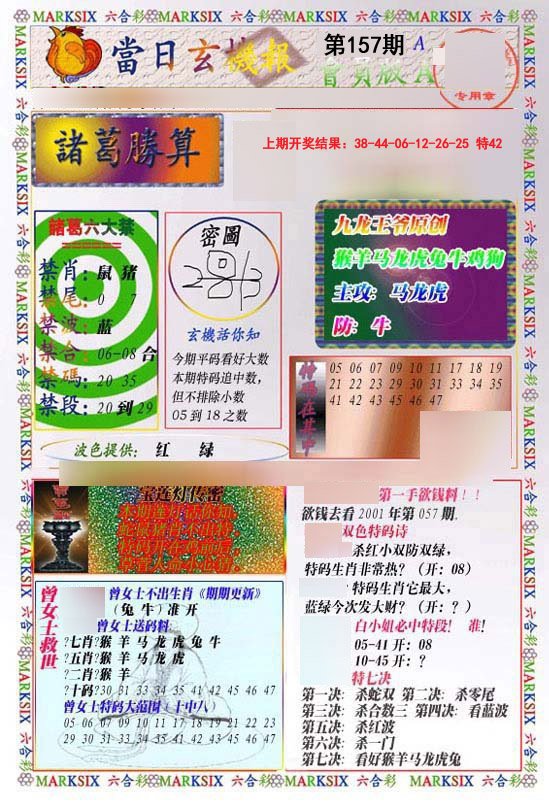 MARKSIX 六合彩 MARKSIX 六合彩 MARKSIX 六合彩 MARKSIX 六合彩
當日玄機報
第157期 A
會員版A
专用章
諸葛勝算
上期开奖结果：38-44-06-12-26-25 特42
諸葛六大禁
======
禁肖：鼠 猪
禁尾：0 7
禁波：蓝
禁合：06-08 合
禁碼：20 35
禁段：20 到 29
密圖
2 3
玄機話你知
今期平码看好大数
本期特码追中数，
但不排除小数
05 到 18 之数
波色提供： 红 绿
九龙王爷原创
猴羊马龙虎兔牛鸡狗
主攻：马龙虎
防：牛
特码在其中
05 06 07 09 10 11 17 18 19
21 22 23 29 30 31 33 34 35
41 42 43 45 46 47
宝莲灯传密
曾女士救世
曾女士不出生肖《期期更新》
（兔 牛）准 开
曾女士送码料
?七肖?猴 羊 马 龙 虎 兔 牛
?五肖?猴 羊 马 龙 虎
?二肖?猴 羊
?十码?30 31 33 34 35 41 42 45 46 47
曾女士特码大范围（十中八）
05 06 07 09 10 11 17 18 19 21 22 23
29 30 31 33 34 35 41 42 43 45 46 47
第一手欲钱料！！
欲钱去看 2001 年第 057 期.
双色特码诗
杀红小双防双绿，
特码生肖非常热？（开：08）
特码生肖它最大，
蓝绿今次发大财？（开：？）
白小姐必中特段！ 准！
05-41 开：08
10-45 开：？
特七决
第一决：杀蛇双 第二决：杀零尾
第三决：杀合数三 第四决：看蓝波
第五决：杀红波
第六决：杀一门
第七决：看好猴羊马龙虎兔
MARKSIX 六合彩 MARKSIX 六合彩 MARKSIX 六合彩 MARKSIX 六合彩